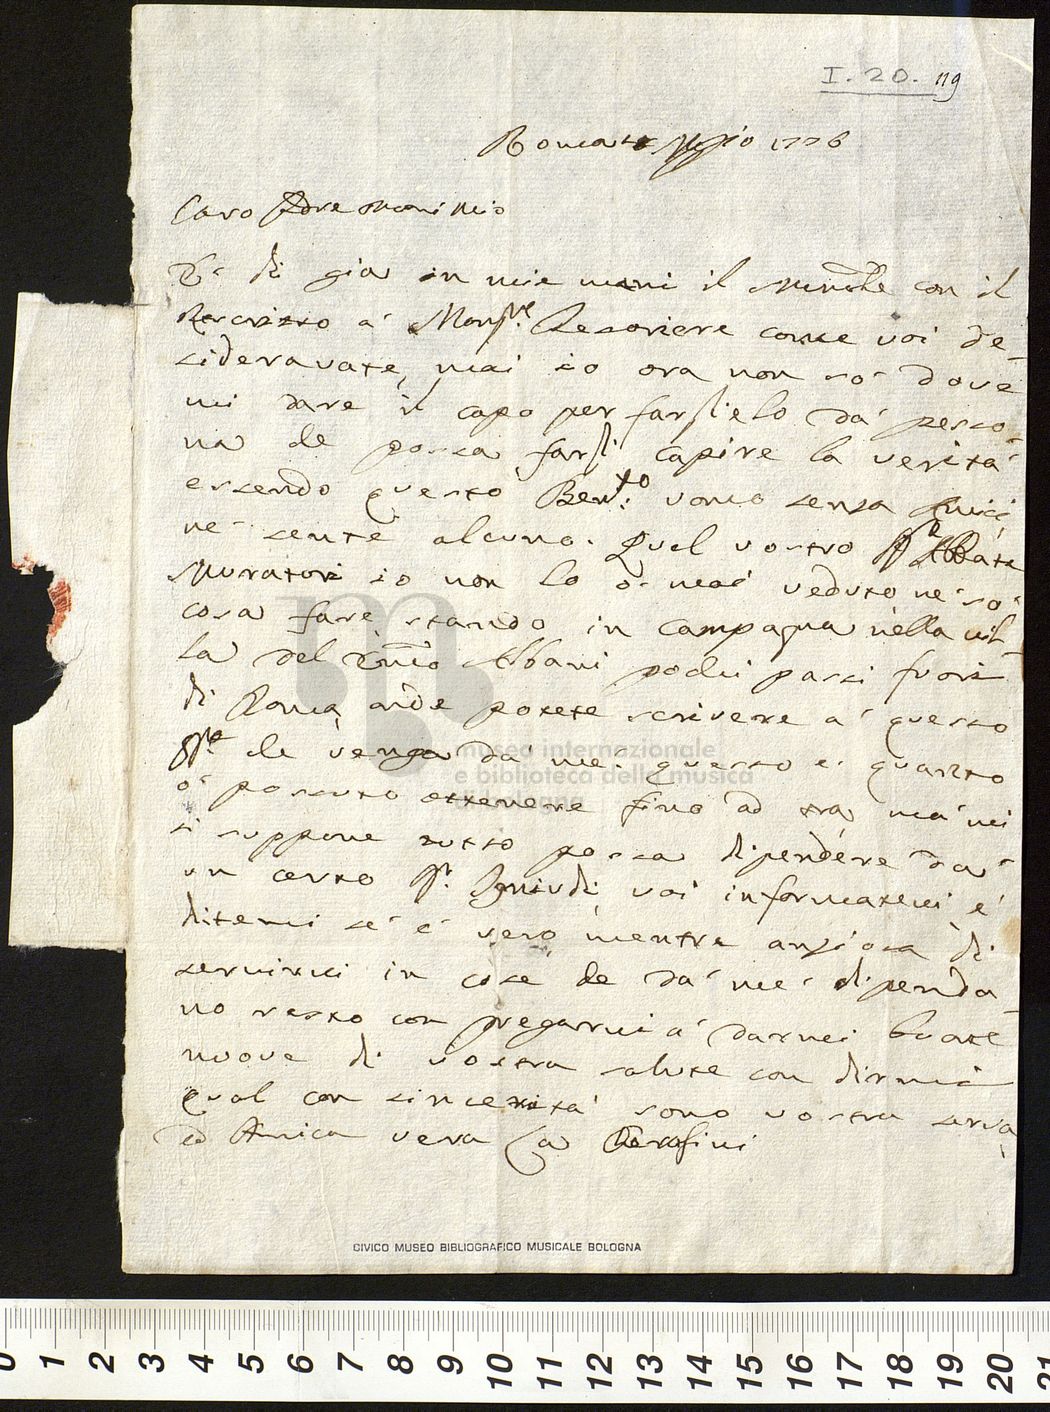 I. 20. 119
Roma Maggio 1776
Caro Padre mio
di già in mie mani il con il
Rescritto a Monsre. Tesoriere come voi de-
sideravate, mai io ora non sò dove
mi dare il capo per farglielo dà perso-
na che possa fargli capire la verità
essendo questo Bento. uomo senza amici
nè sente alcuno. Quel vostro Sigre Abbate
Muratori io non lo ò mai veduto nè sò
cosa fare stando in campagna nella vil-
la del Albani pochi passi fuori
di Roma, onde potete scrivere à questo
Sigre che venga dà mè. questo è quanto
ò possuto ottenere fino ad ora mà mi
si suppone tutto possa dipendere dà
un certo Sigr. voi informatevi è
ditemi sè è vero, mentre ansiosa di
servirvi in cose che dà mè dipenda-
no resto con pregarvi à darmi buone
nuove di vostra salute con dirmi
qual con sincerità sono vostra serva
ed Amica vera La Cherofini
museo internazionale
e biblioteca della musica
di bologna
CIVICO MUSEO BIBLIOGRAFICO MUSICALE BOLOGNA
0 1 2 3 4 5 6 7 8 9 10 11 12 13 14 15 16 17 18 19 20 21